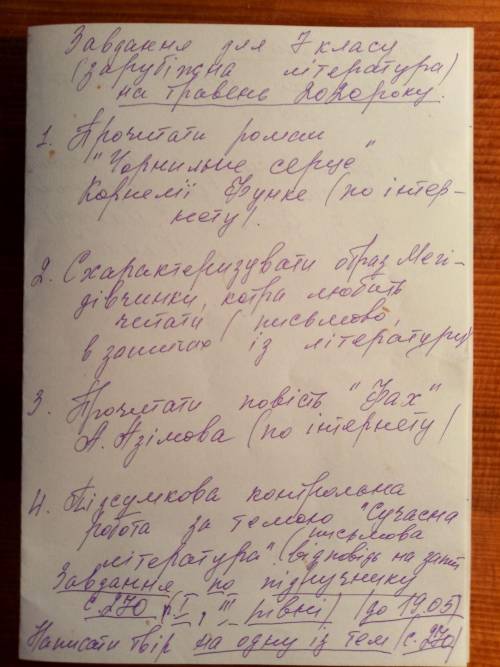 Завдання для 7 класу
(зарубіжна література)
на травень 2020 року.
1. Прочитати роман
"Чорнильне серце"
Корнелії Функе (по інтер-
нету).
2. Схарактеризувати образ Мегі-
дівчинки, котра любить
читати (письмово,
в зошитах із літератури)
3. Прочитати повість "Фах"
А. Азімова (по інтернету)
4. Підсумкова контрольна
робота за темою "Сучасна
література" (письмова
відповідь на запит
Завдання по підручнику
с. 270 (I, III рівні) (до 19.05)
Написати твір на одну із тем (с. 270)